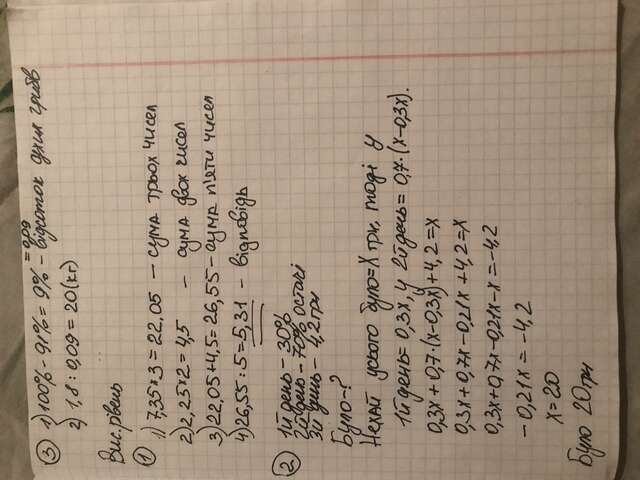 ③ 1) 100% - 91% = 9% = 0,09 - відсоток сухих грибів
2) 1,8 : 0,09 = 20 (кг)
Вис. рівень
① 1) 7,35 × 3 = 22,05 - сума трьох чисел
2) 2,25 × 2 = 4,5 - сума двох чисел
3) 22,05 + 4,5 = 26,55 - сума п'яти чисел
4) 26,55 : 5 = 5,31 - відповідь
② 1й день - 30%
2й день - 70% остачі
3й день - 4,2 грн
Було - ?
Нехай усього було = x грн, тоді у
1й день = 0,3x, у 2й день = 0,7·(x-0,3x).
0,3x + 0,7·(x-0,3x) + 4,2 = x
0,3x + 0,7x - 0,21x + 4,2 = x
0,3x + 0,7x - 0,21x - x = -4,2
-0,21x = -4,2
x = 20
Було 20 грн